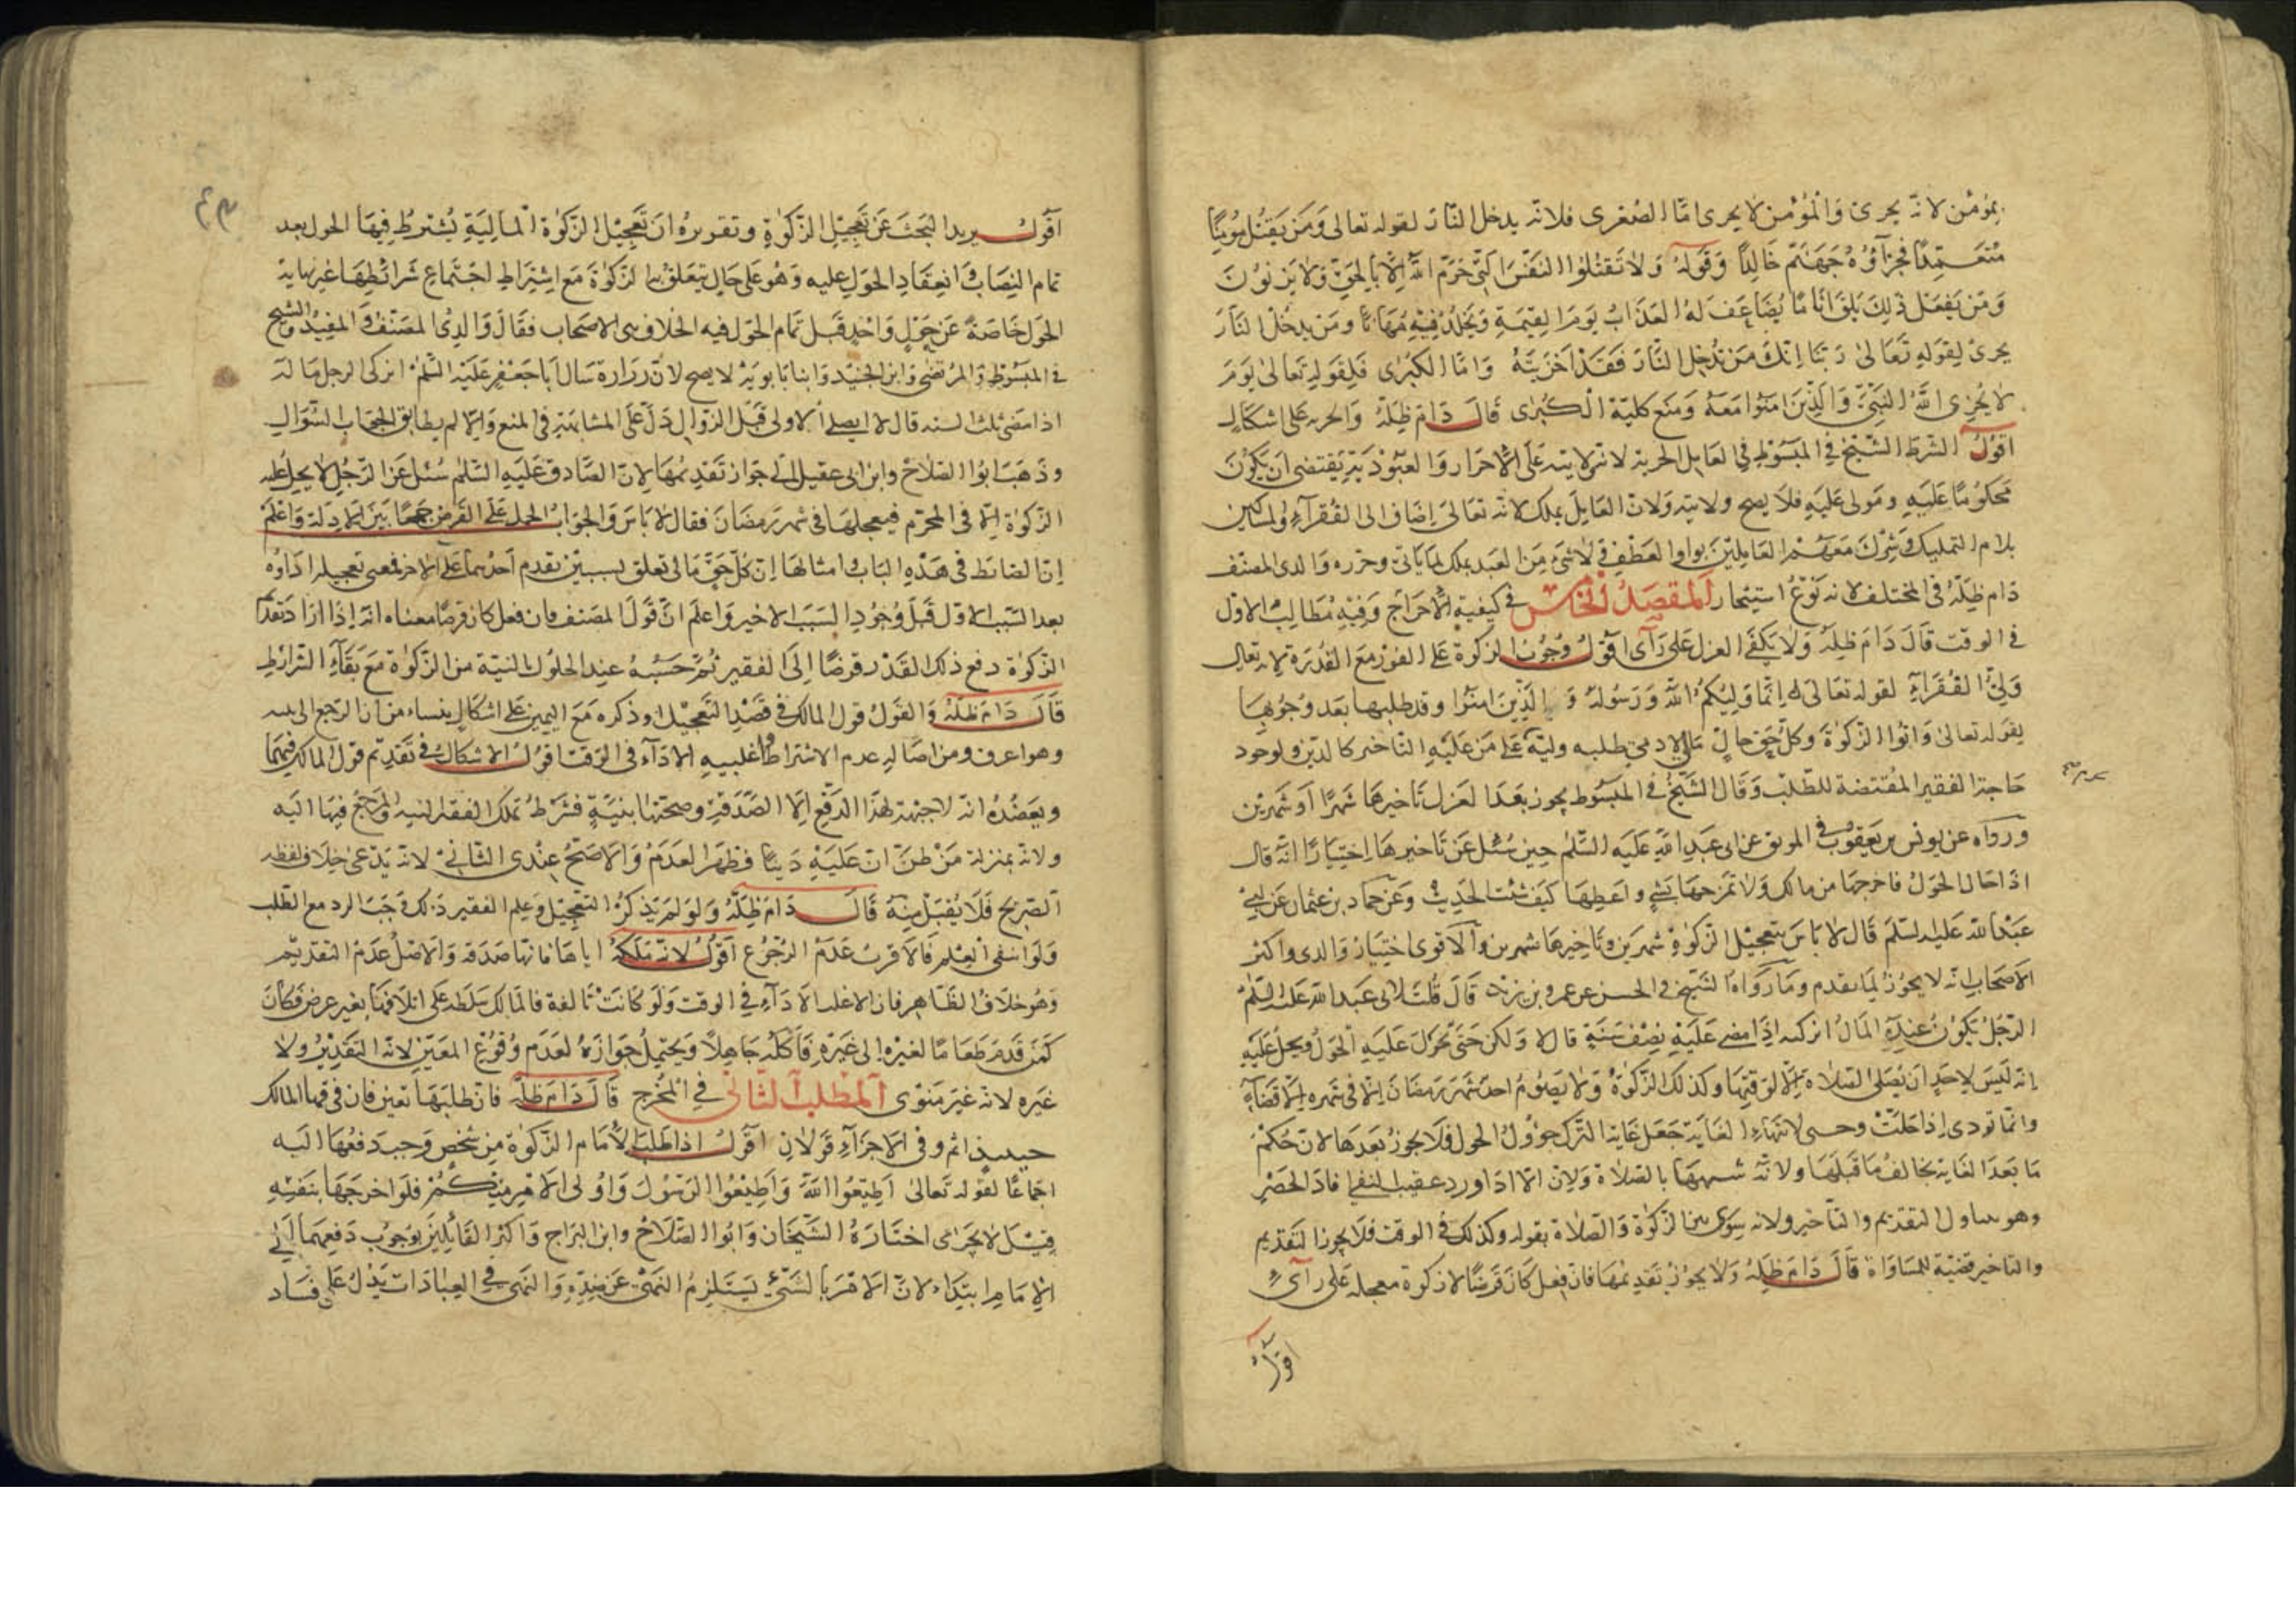 بمؤمن لانه يجزى والمؤمن لا يجزى اما الصغرى فلانه يدخل النار لقوله تعالى ومن يقتل مؤمنا
متعمدا فجزاؤه جهنم خالدا وقوله ولا تقتلوا النفس التي حرم الله الا بالحق ولا يزنون
ومن يفعل ذلك يلق اثاما يضاعف له العذاب يوم القيمة ويخلد فيه مهانا ومن يدخل النار
يجزى لقوله تعالى ربنا انك من تدخل النار فقد اخزيته واما الكبرى فلقوله تعالى يوم
لا يخزى الله النبي والذين امنوا معه ومنع كلية الكبرى قال دام ظله والحريه على اشكال
اقول الشرط الشيخ في المبسوط في العامل الحرية لانه ولاية على الاحرار والعبودية يقتضى ان يكون
محكوما عليه ومولى عليه فلا يصح ولايته ولان العامل يملك لانه تعالى اضاف الى الفقراء والمساكين
بلام التمليك وشرك معهم العاملين بواو العطف ولا شئ من العبد يملك لما ياتي وجوزه والدى المصنف
دام ظله في المختلف لانه نوع استيجار المقصد الخامس في كيفية الاخراج وفيه مطالب الاول
في الوقت قال دام ظله ولا يكفي العزل على رآى اقول وجوب الزكوة على الفور مع القدرة لانه تعالى
ولى الفقراء لقوله تعالى انما وليكم الله ورسوله والذين امنوا وقد طلبها بعد وجوبها
بقوله تعالى واتوا الزكوة وكل حق حال مالى لادمى طلبه وليه على من عليه التاخير كالدين ولوجود
حاجة الفقير المقتضية للطلب وقال الشيخ في المبسوط يجوز بعد العزل تاخيرها شهرا او شهرين
ورواه عن يونس بن يعقوب في الموثق عن ابى عبد الله عليه السلم حين سئل عن تاخيرها اختيارا انه قال
اذا حال الحول فاخرجها من مالك ولا تمزجها بشئ واعطها كيف شئت الحديث وعن حماد بن عثمان عن ابى
عبد الله عليه السلم قال لا باس بتعجيل الزكوة شهرين وتاخيرها شهرين والاقوى اختيار والدى واكثر
الاصحاب انه لا يجوز لما تقدم وما رواه الشيخ في الحسن عن عمرو بن يزيد قال قلت لابى عبد الله عليه السلم
الرجل يكون عنده المال ايزكيه اذا مضى عليه نصف سنة قال لا ولكن حتى يحول عليه الحول ويحل عليه
انه ليس لاحد ان يصلى الصلاة الا لوقتها وكذلك الزكوة ولا يصوم احد شهر رمضان الا في شهره الا قضاء
وانما تودى اذا حلت وحتى لانتهاء الغاية جعل غاية الترك حؤول الحول فلا يجوز بعدها لان حكم
ما بعد الغاية يخالف ما قبلها ولانه شبهها بالصلاة ولان الا اذا ورد عقيب النفى افاد الحصر
وهو يتناول التقديم والتاخير ولانه سوى بين الزكوة والصلاة بقوله وكذلك في الوقت فلا يجوز التقديم
والتاخير قضية للمساواة قال دام ظله ولا يجوز تقديمها فان فعل كان قرضا لا زكوة معجله على رآى
اقول
اقول يريد البحث عن تعجيل الزكوة وتقريره ان تعجيل الزكوة المالية يشترط فيها الحول بعد
تمام النصاب وانعقاد الحول عليه وهو على حال يتعلق بها الزكوة مع اشتراط اجتماع شرائطها غير نهاية
الحول خاصة عن حول واحد قبل تمام الحول فيه الخلاف بين الاصحاب فقال والدى المصنف والمفيد والشيخ
في المبسوط والمرتضى وابن الجنيد وابنا بابويه لا يصح لان زرارة سال ابا جعفر عليه السلم ايزكى الرجل ماله
اذا مضى ثلث السنه قال لا ايصلى الاولى قبل الزوال دل على المشابهة في المنع والا لم يطابق الجواب السؤال
وذهب ابو الصلاح وابن ابى عقيل الى جواز تقديمها لان الصادق عليه السلم سئل عن الرجل لا يحل عليه
الزكوة الا في المحرم فيعجلها في شهر رمضان فقال لا باس والجواب الحمل على القرض جمعا بين الادلة واعلم
ان الضابط في هذه الباب وامثالها ان كل حق مالى تعلق بسببين تقدم احدهما على الاخر فمعنى تعجيله اداؤه
بعد السبب الاول قبل وجود السبب الاخير واعلم ان قول المصنف فان فعل كان قرضا معناه انه اذا اراد تقديم
الزكوة دفع ذلك القدر قرضا الى الفقير ثم حسبه عند الحلول بالنية من الزكوة مع بقاء الشرائط
قال دام ظله والقول قول المالك في قصد التعجيل وذكره مع اليمين على اشكال ينشاء من ان المرجع الى نيته
وهو اعرف ومن اصالة عدم الاشتراط واغلبية الاداء في الوقت اقول الاشكال في تقديم قول المالك فيهما
ويعضده انه لا جهة لهذا الدفع الا الصدقة وصحتها بنية فشرط تملك الفقير النية والمرجع فيها اليه
ولانه بمنزلة من ظن ان عليه دينا فظهر العدم والاصح عندى الثاني لانه يدعى خلاف لفظه
الصريح فلا يقبل منه قال دام ظله ولو لم يذكر التعجيل وعلم الفقير ذلك وجب الرد مع الطلب
ولو انتفى العلم فالاقرب عدم الرجوع اقول لانه ملكه اياها فانها صدقه والاصل عدم التقديم
وهو خلاف الظاهر فان الاغلب الاداء في الوقت ولو كانت تالفة فالمالك سلطه على اتلافها بغير عوض فكان
كمن قدم طعاما لغيره الى غيره فاكله جاهلا ويحتمل جوازه لعدم وقوع المعين لانه التقدير ولا
غيره لانه غير منوى المطلب الثاني في المخرج قال دام ظله فان طلبها تعين فان فرقها المالك
حينئذ اثم وفي الاجزآء قولان اقول اذا طلب الامام الزكوة من شخص وجب دفعها اليه
اجماعا لقوله تعالى اطيعوا الله واطيعوا الرسول واولى الامر منكم فلو اخرجها بنفسه
قيل لا يجزى اختاره الشيخان وابو الصلاح وابن البراج واكثر القائلين بوجوب دفعها الى
الامام ابتداء لان الامر بالشئ يستلزم النهى عن ضده والنهى في العبادات يدل على فساد